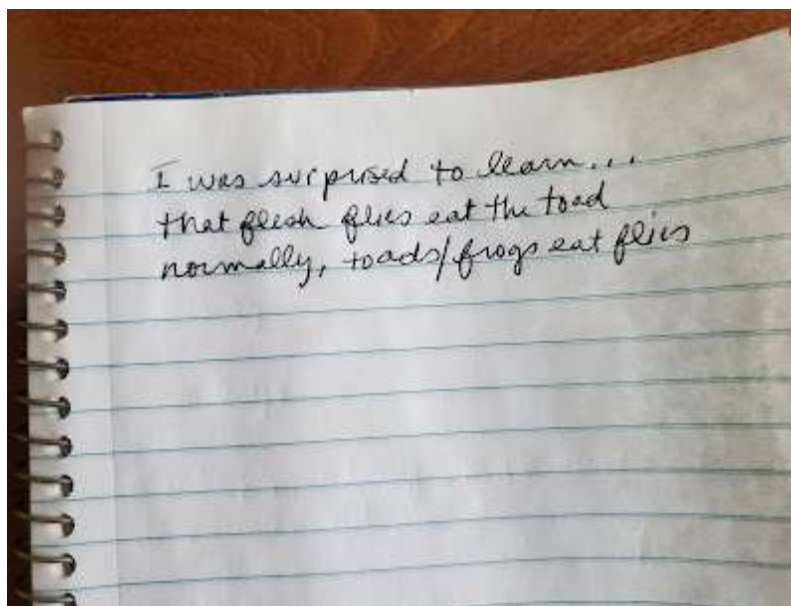 I was surprised to learn...
that flesh flies eat the toad
normally, toads/frogs eat flies